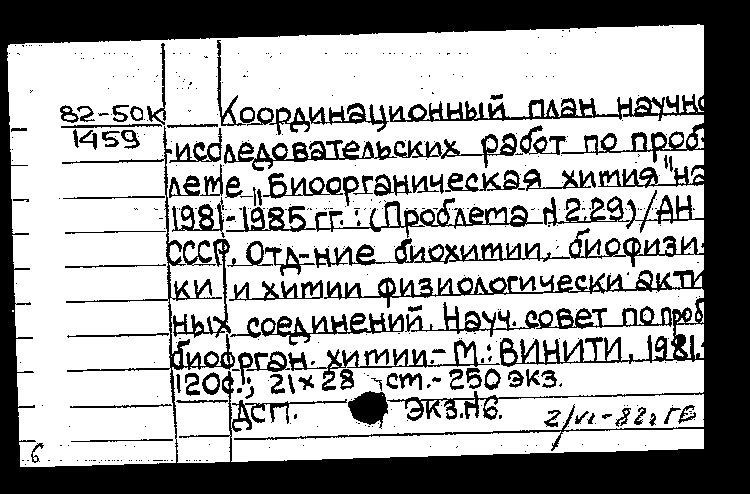 82-50к
1459
Координационный план научно
-исследовательских работ по проб-
леме „Биоорганическая химия" на
1981-1985 гг. : (Проблема N 2.29) / АН
СССР. Отд-ние биохимии, биофизи-
ки и химии физиологически акти
ных соединений. Науч. совет по проб
биоорган. химии.- М.: ВИНИТИ, 1981.-
120с.; 21×28 ст.- 250 экз.
ДСП. экз.N6. 2/VI-82г ГВ
6